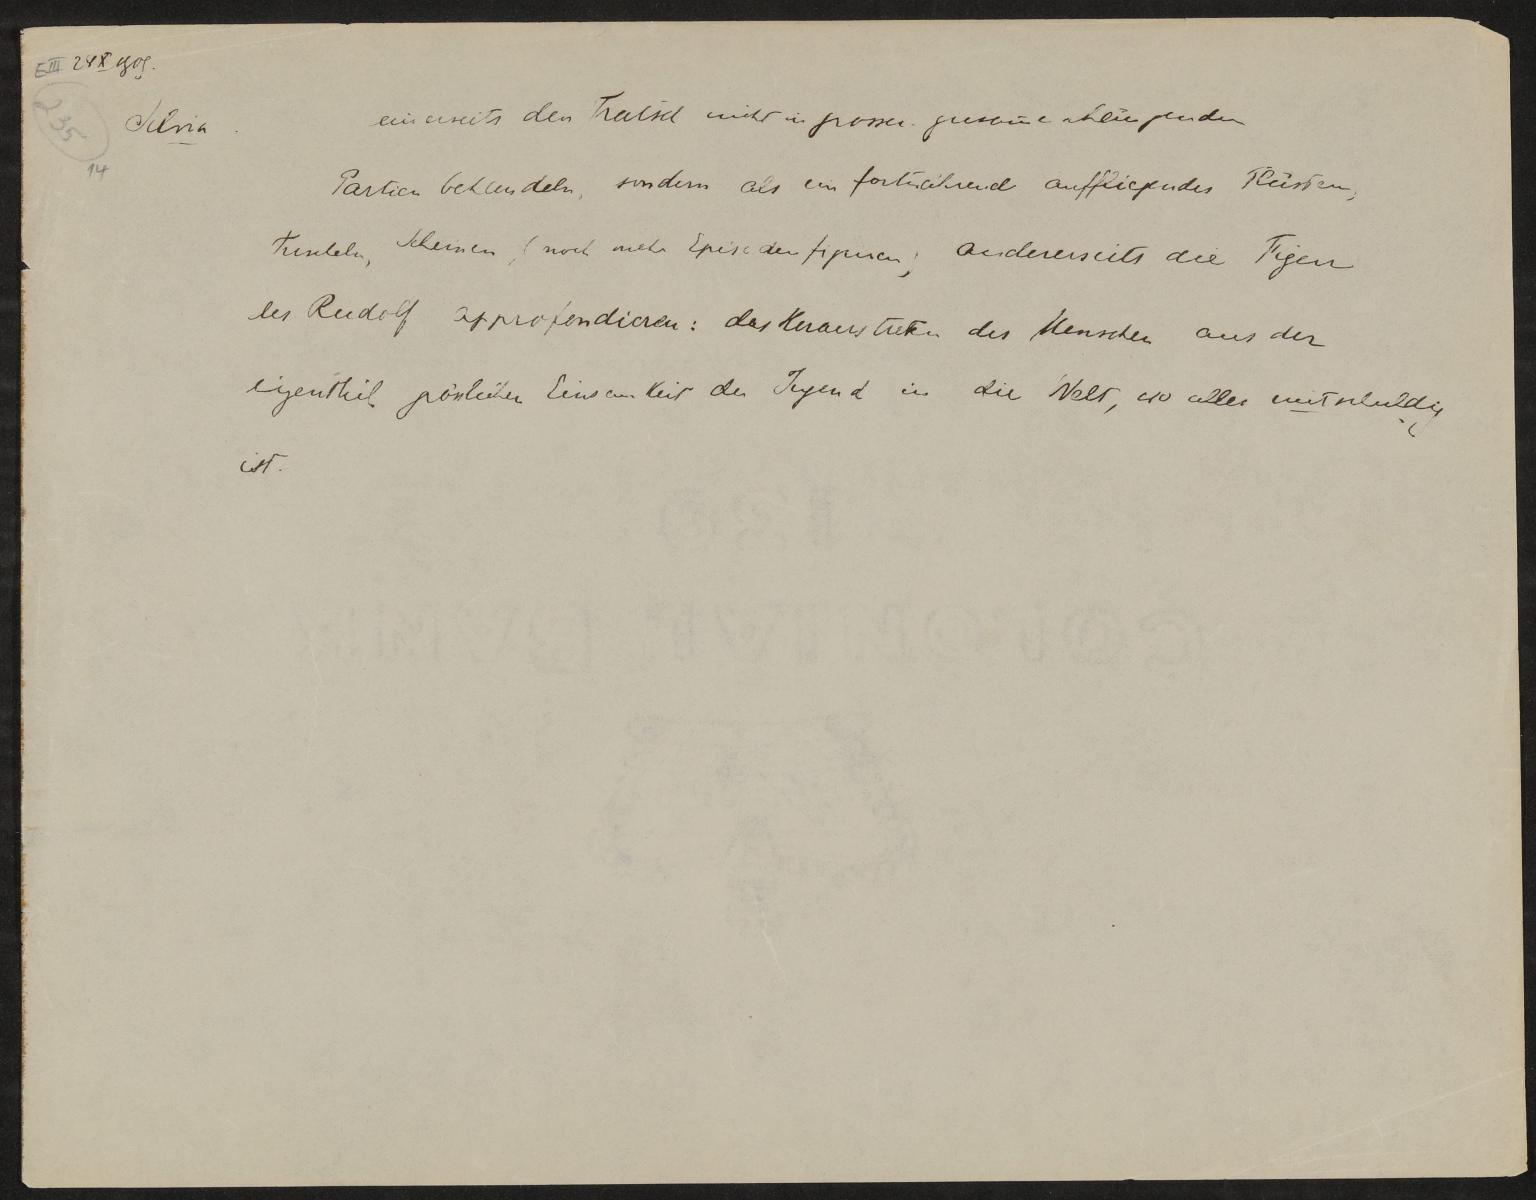 EIII 24 X 909.
235
14
Silvia.
einerseits den Tratsch nicht in grossen
Partien behandeln, sondern als ein fortwährend auffliegendes Flüstern,
Tuscheln, (noch mehr Episodenfiguren; andererseits die Figur
des Rudolf approfondieren: das Heraustreten des Menschen aus der
eigenthüml Einsamkeit der Jugend in die Welt, wo alles mitschuldig
ist.
130
COLONIAL